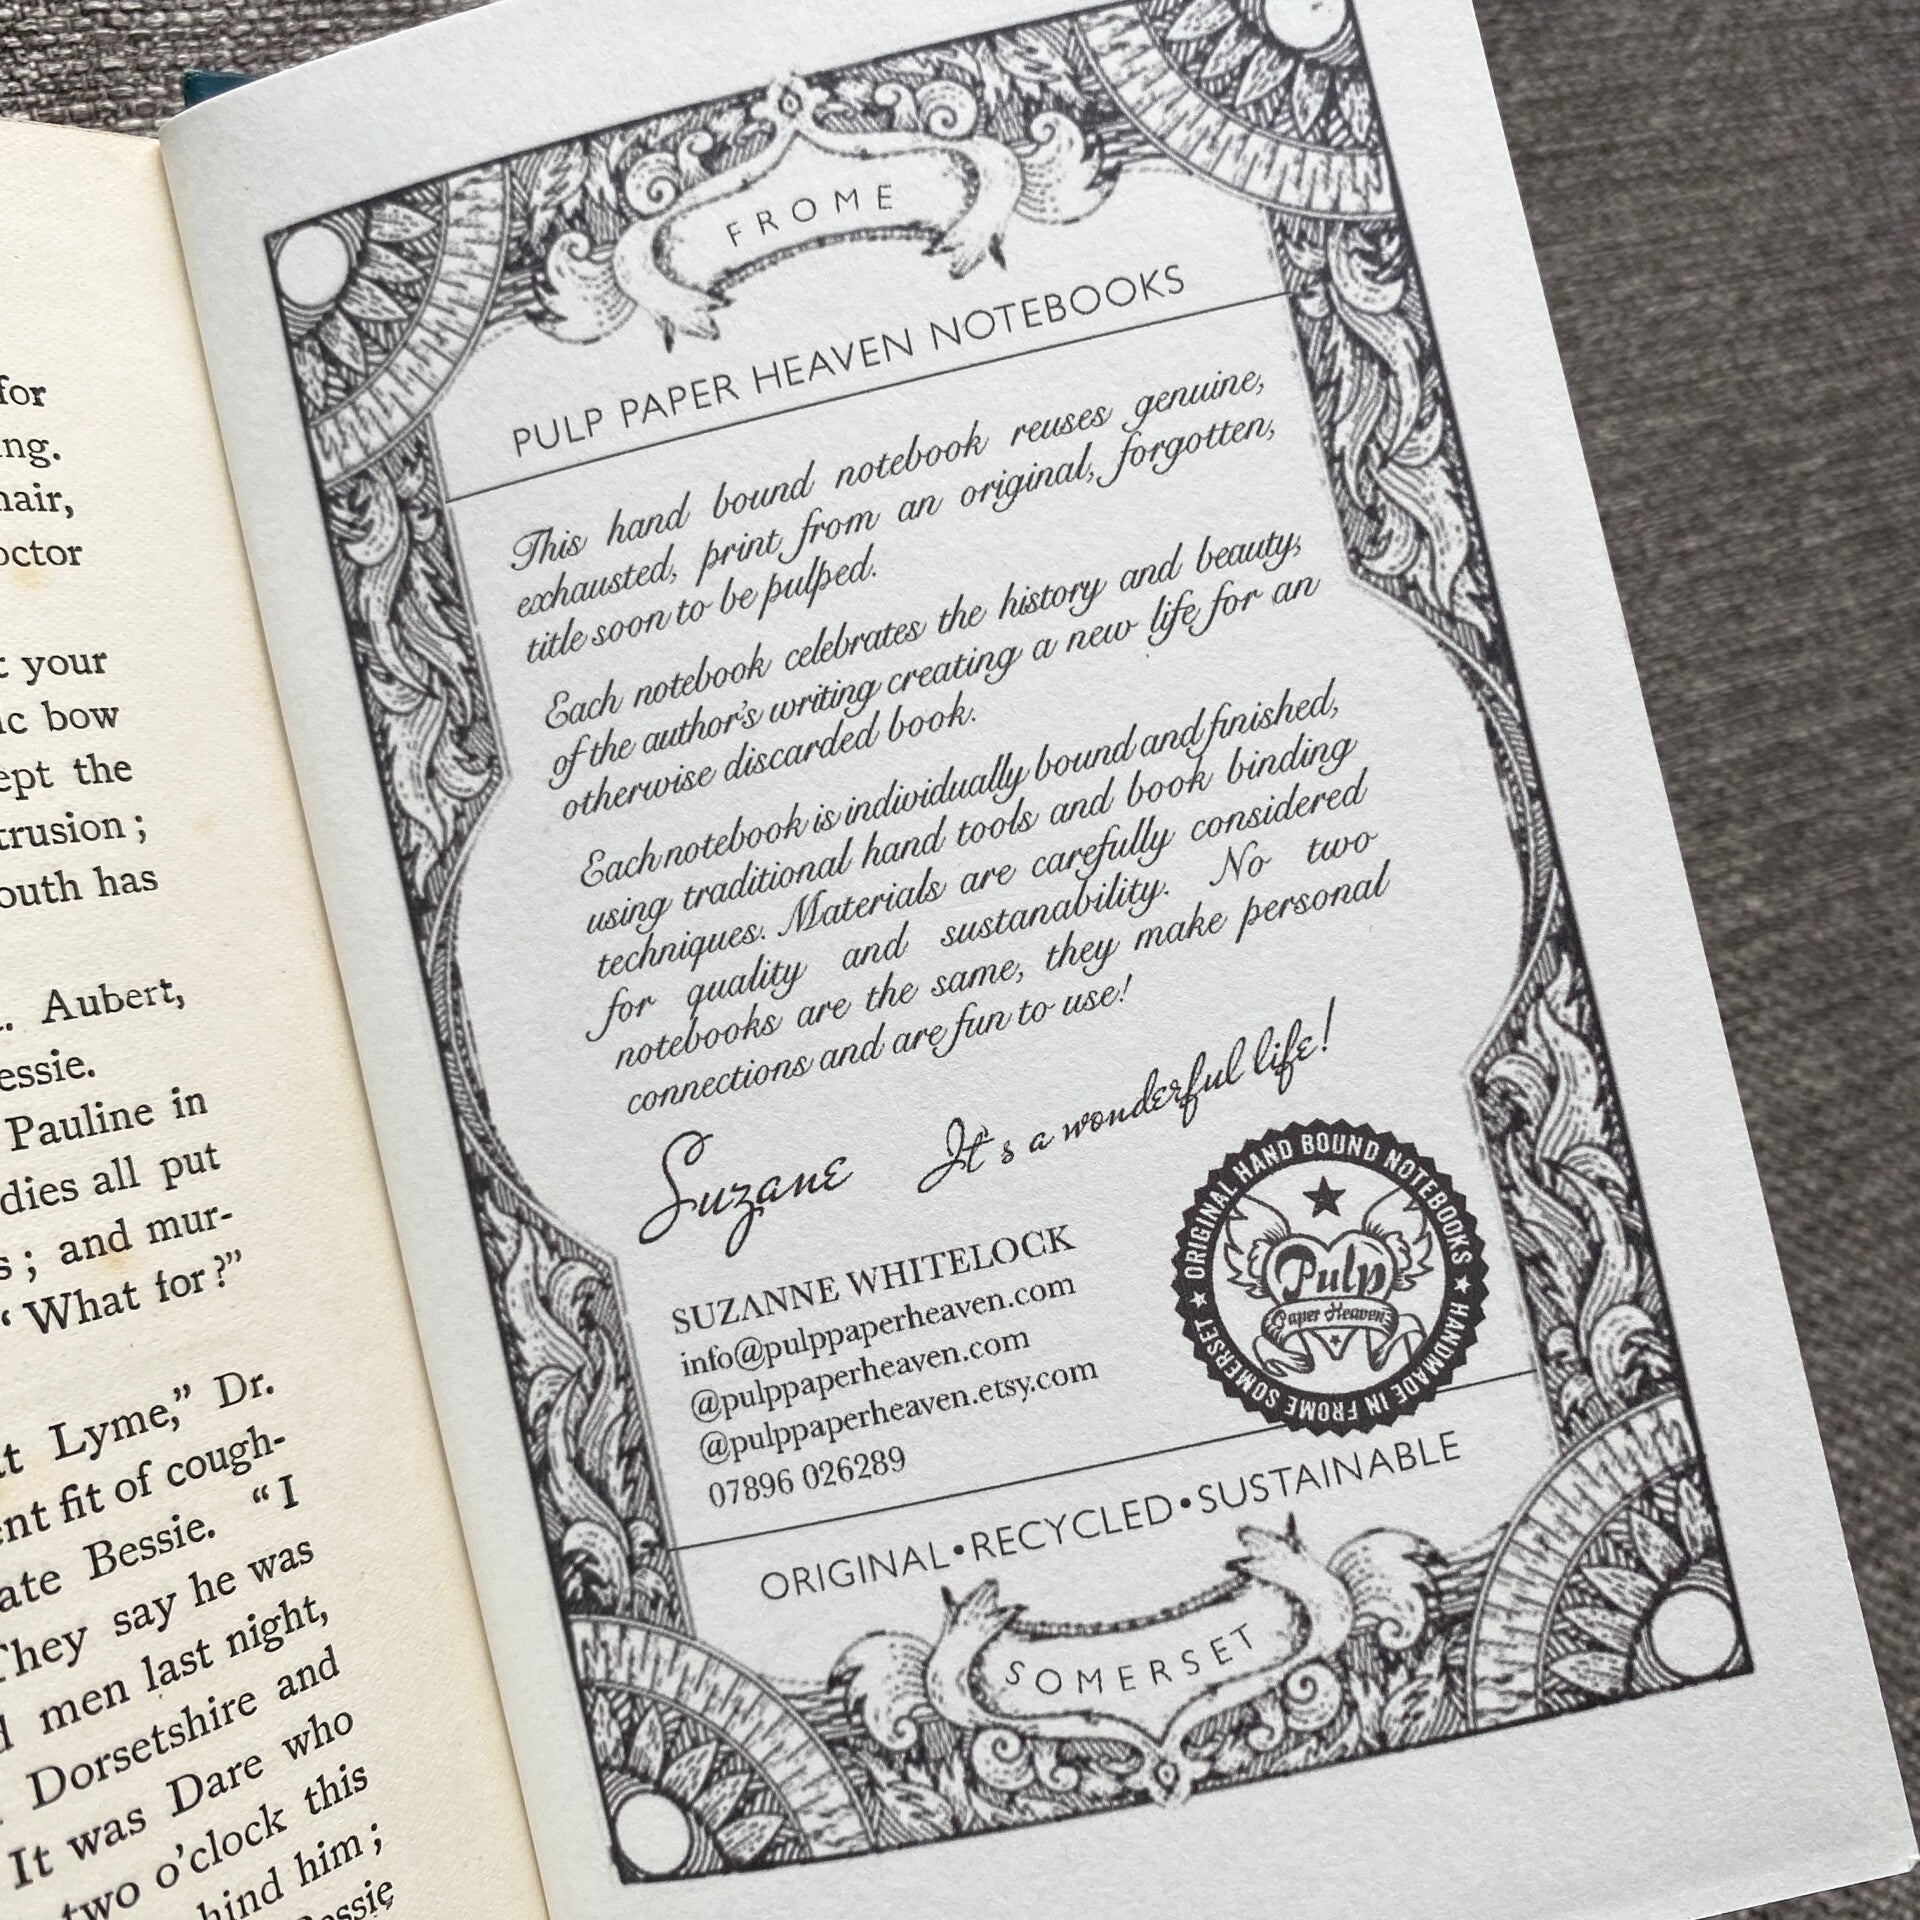 for
ng.
hair,
octor
t your
ic bow
ept the
trusion;
outh has
Aubert,
essie.
Pauline in
dies all put
s; and mur-
“What for?”
at Lyme,” Dr.
ent fit of cough-
ate Bessie. “I
They say he was
d men last night,
Dorsetshire and
It was Dare who
two o'clock this
hind him;
Bessie
FROME
PULP PAPER HEAVEN NOTEBOOKS
This hand bound notebook reuses genuine,
exhausted, print from an original, forgotten,
title soon to be pulped.
Each notebook celebrates the history and beauty,
of the author's writing creating a new life for an
otherwise discarded book.
Each notebook is individually bound and finished,
using traditional hand tools and book binding
techniques. Materials are carefully considered
for quality and sustanability. No two
notebooks are the same, they make personal
connections and are fun to use!
Suzane It's a wonderful life!
SUZANNE WHITELOCK
info@pulppaperheaven.com
@pulppaperheaven.com
@pulppaperheaven.etsy.com
07896 026289
ORIGINAL HAND BOUND NOTEBOOKS ★ HANDMADE IN FROME SOMERSET ★
Pulp
Paper Heaven
ORIGINAL•RECYCLED•SUSTAINABLE
SOMERSET